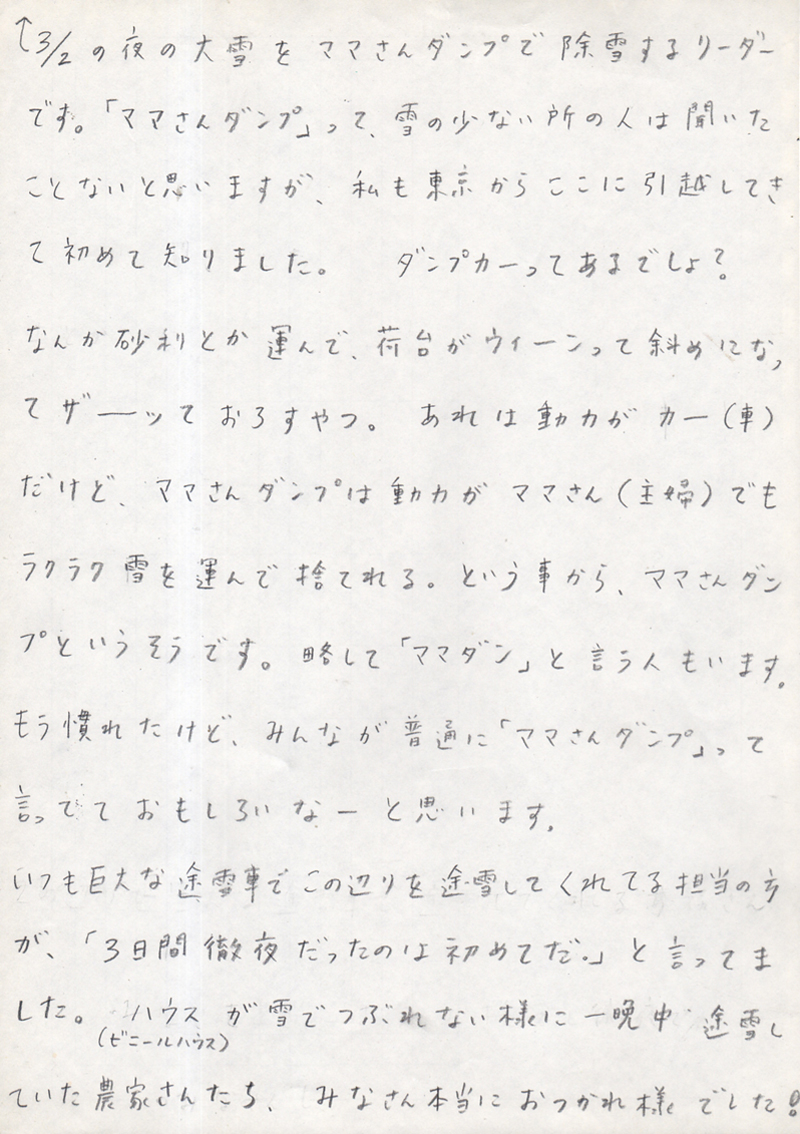 ↑3/2の夜の大雪をママさんダンプで除雪するリーダー
です。「ママさんダンプ」って、雪の少ない所の人は聞いた
ことないと思いますが、私も東京からここに引越してき
て初めて知りました。 ダンプカーってあるでしょ?
なんか砂利とか運んで、荷台がウィーンって斜めになっ
てザーッておろすやつ。あれは動力がカー(車)
だけど、ママさんダンプは動力がママさん(主婦)でも
ラクラク雪を運んで捨てれる。という事から、ママさんダン
プというそうです。略して「ママダン」と言う人もいます。
もう慣れたけど、みんなが普通に「ママさんダンプ」って
言ってておもしろいなーと思います。
いつも巨大な途雪車でこの辺りを途雪してくれてる担当の方
が、「3日間徹夜だったのは初めてだ。」と言ってま
した。 ハウスが雪でつぶれない様に一晩中途雪し
(ビニールハウス)
ていた農家さんたち、みなさん本当におつかれ様でした!